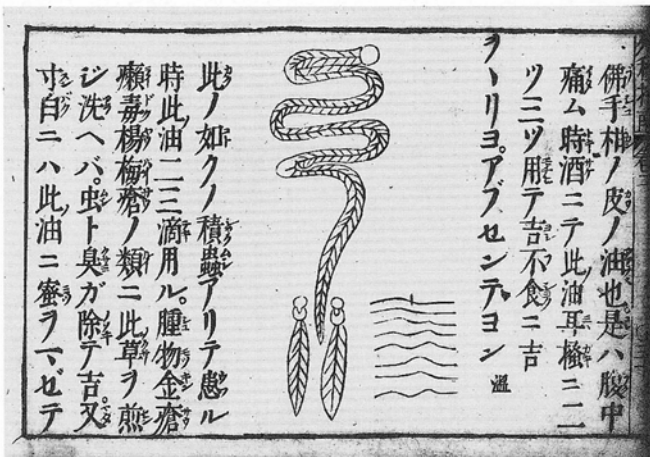 佛手柑ノ皮ノ油也。是ハ腹中
痛ム時酒ニテ此油耳掻ニ二
ツ三ツ用テ吉不食ニ吉
ヲヽリヨ。アブセンテヨン
此ノ如クノ積蟲アリテ患ル
時此ノ油二三滴用ル。腫物金瘡
癩毒楊梅瘡ノ類ニ此草ヲ煎
ジ洗ヘバ。虫ト臭ガ除テ吉。又
寸白ニハ此ノ油ニ蜜ヲマゼテ